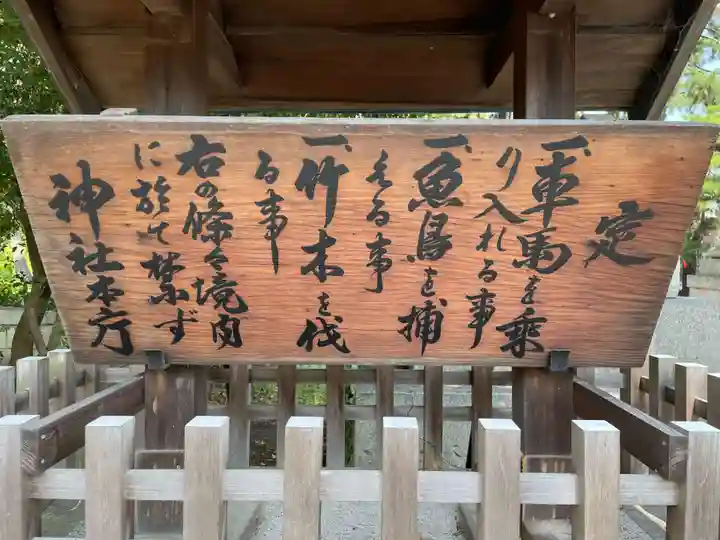 定
一車馬を乗
り入れる事
一魚鳥を捕
へる事
一竹木を伐
る事
右の條々境内
に於て禁ず
神社本庁